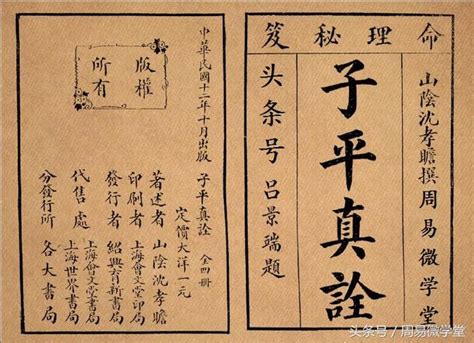 命理秘笈
山陰沈孝瞻撰周易微学堂
子平真詮
头条号 呂景端題
版權
所有
中華民國十二年十月出版 子平真詮 全四冊
定價大洋一元
著述者 山陰沈孝瞻
印刷者 上海會文堂印局
發行者 紹興育新書局
代售處 上海會文堂書局
上海世界書局
分發行所 各大書局
头条号／周易微学堂